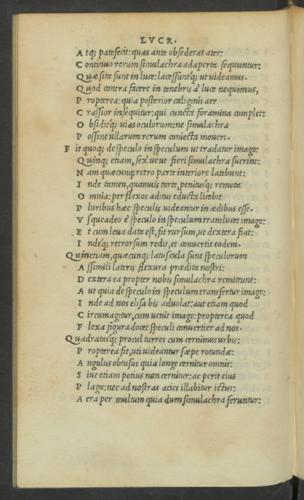 LVCR.
A tq; patefecit: quas ante obsederat ater:
C ontinuo rerum simulachra adaperta sequuntur:
Q uæ sita sunt in luce: lacessuntq; ut uideamus.
Q uod contra facere in tenebris à luce nequimus,
P ropterea: quia posterior caliginis aer
C rassior insequitur: qui cuncta foramina complet:
O bsiditq; uias oculorum: ne simulachra
P ossint ullarum rerum coniecta moueri.
F it quoq; de speculo in speculum ut tradatur imago:
Q uinq; etiam, sex ue ut fieri simulachra suerint:
N am quæcunq; retro parte interiore latebunt:
I nde tamen, quamuis torte, penitusq; remota
O mnia: per flexos aditus educta licebit
P luribus hæc speculis uideantur in ædibus esse.
V sque adeo è speculo in speculum translucet imago:
E t cum læua data est, fit rursum, ut dextera fiat:
I ndeq; retrorsum redit, et conuertit eodem.
Q uinetiam, quæcunq; latuscula sunt speculorum
A ssimili lateris flexura prædita nostri:
D extera ea propter nobis simulachra remittunt:
A ut quia de speculo in speculum transfertur imago:
I nde ad nos elisa bis aduolat: aut etiam quod
C ircumagitur, cum uenit imago: propterea quod
F lexa figura docet speculi conuertier ad nos.
Q uadratasq; procul turres cum cernimus urbis:
P ropterea fit, uti uideantur sæpe rotundæ:
A ngulus obtusus quia longe cernitur omnis:
S iue etiam potius non cernitur: ac perit eius
P laga: nec ad nostras acies illabitur ictus:
A era per multum quia dum simulachra feruntur: